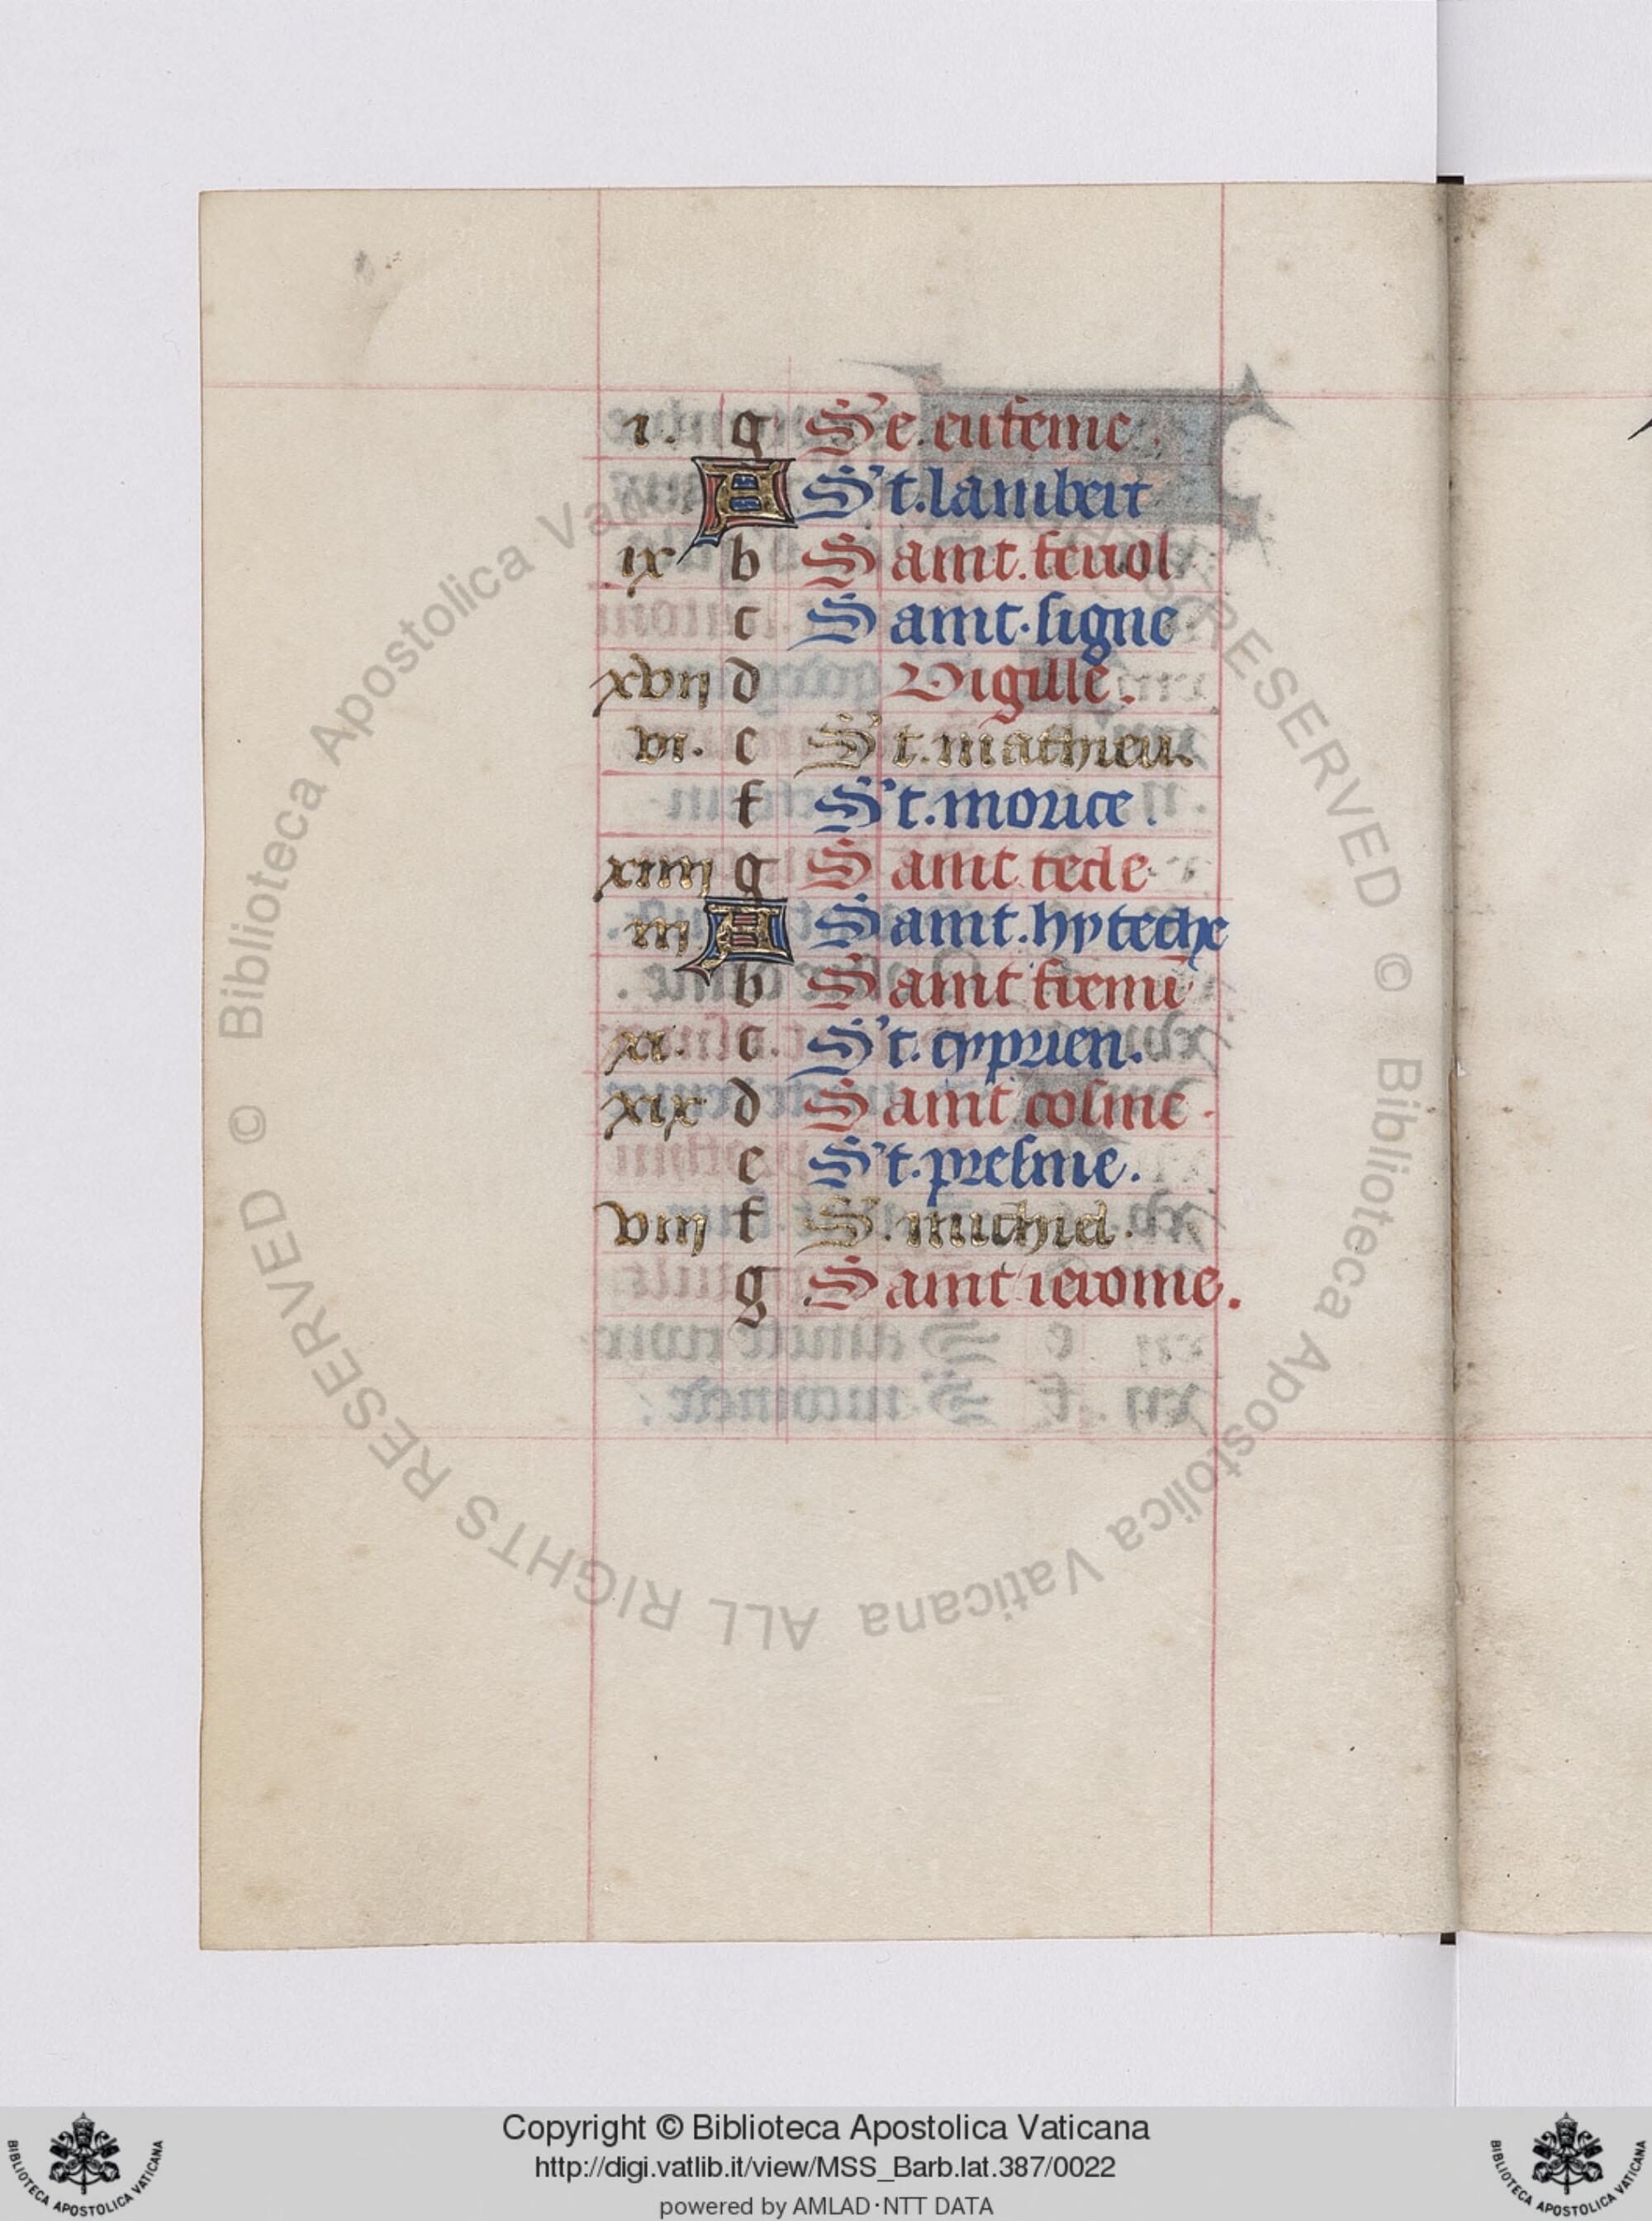 ı. g Se. eufeme.
A St. lambert
ix b Saint. feriol
c Saint. signe
xvıȷ d Vigille.
vı. e St. mathieu.
f St. morice.
xıııȷ g Saint tecle
ııȷ A Saint. hyteche
b Saint firmī
xı. c St. cyprien.
xıx d Saint cosme.
e St. presme.
vııȷ f S. michiel.
g Saint ierome.
© Biblioteca Apostolica Vaticana ALL RIGHTS RESERVED
© Biblioteca Apostolica Vaticana ALL RIGHTS RESERVED
Copyright © Biblioteca Apostolica Vaticana
http://digi.vatlib.it/view/MSS_Barb.lat.387/0022
powered by AMLAD·NTT DATA
BIBLIOTECA APOSTOLICA VATICANA
BIBLIOTECA APOSTOLICA VATICANA